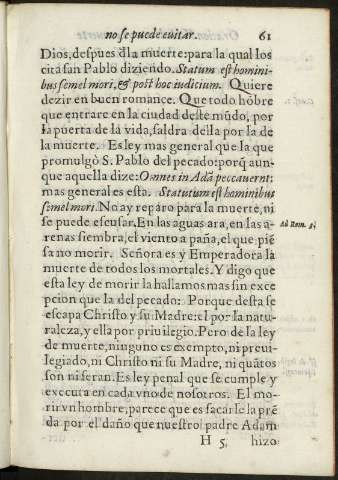 no se puede euitar. 61
Dios, despues đla muerte: para la qual los
cita san Pablo diziendo. Statum est homini-
bus semel mori, & post hoc iudicium. Quiere
dezir en buen romance. Que todo hõbre
que entrare en la ciudad deste mũdo, por
la puerta de la vida, saldra della por la de
la muerte. Es ley mas general que la que
promulgò S. Pablo del pecado: porq̃ aun-
que aquella dize: Omnes in Adã peccauerunt:
mas general es esta. Statutum est hominibus
semel mori. No ay reparo para la muerte, ni
se puede escusar. En las aguas ara, en las a-
renas siembra, el viento apaña, el que piẽ
sa no morir. Señora es y Emperadora la
muerte de todos los mortales. Y digo que
esta ley de morir la hallamos mas sin exce
pcion que la del pecado: Porque desta se
escapa Christo y su Madre: el por la natu-
raleza, y ella por priuilegio. Pero de la ley
de muerte, ninguno es exempto, ni preui-
legiado, ni Christo ni su Madre, ni quãtos
son ni seran. Es ley penal que se cumple y
executa en cada vno de nosotros. El mo-
rir vn hombre, parece que es sacarle la prẽ
da por el daño que nuestro padre Adam
H 5 hizo
Ad Rom. 5.